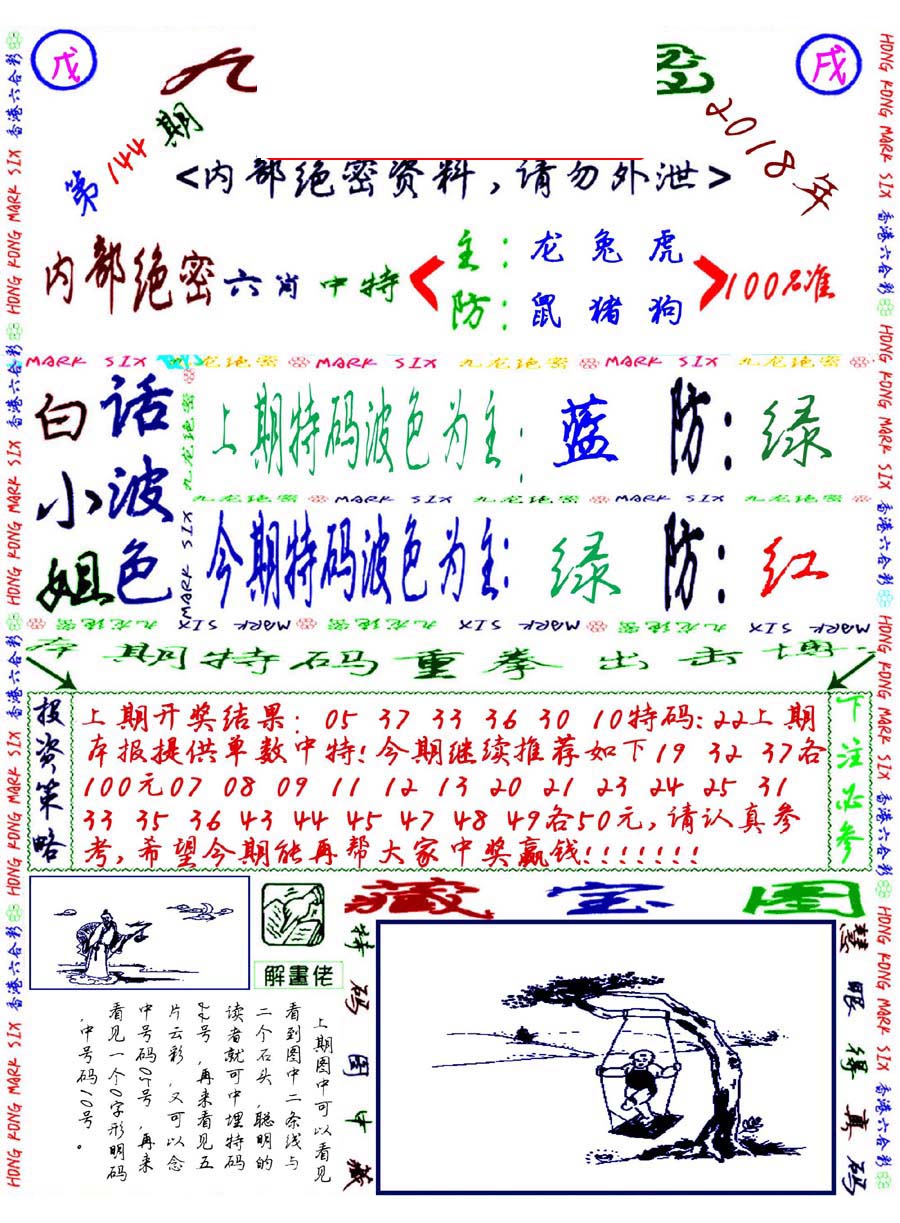 戊
九
密
戌
第144期
2018年
<内部绝密资料,请勿外泄>
内部绝密六肖中特
主:龙兔虎
防:鼠猪狗
100%准
MARK SIX 九龙绝密 MARK SIX 九龙绝密 MARK SIX 九龙绝密
白话
小波
姐色
上期特码波色为主:蓝 防:绿
九龙绝密 MARK SIX 九龙绝密 MARK SIX 九龙绝密
今期特码波色为主:绿 防:红
MARK SIX 九龙绝密 MARK SIX 九龙绝密 MARK SIX 九龙绝密
本期特码重拳出击博
投资策略
上期开奖结果:05 37 33 36 30 10特码:22上期
本报提供单数中特!今期继续推荐如下19 32 37各
100元07 08 09 11 12 13 20 21 23 24 25 31
33 35 36 43 44 45 47 48 49各50元,请认真参
考,希望今期能再帮大家中奖赢钱!!!!!!!
下注必参
藏宝图
解畫佬
上期图中可以看见
看到图中二条线与
二个石头,聪明的
读者就可中埋特码
22号,再来看见五
片云彩,又可以念
中号码05号,再来
看见一个0字形明码
,中号码10号。
特码图中藏
慧眼得真码
HONG KONG MARK SIX 香港六合彩 HONG KONG MARK SIX 香港六合彩 HONG KONG MARK SIX 香港六合彩 HONG KONG MARK SIX 香港六合彩
HONG KONG MARK SIX 香港六合彩 HONG KONG MARK SIX 香港六合彩 HONG KONG MARK SIX 香港六合彩 HONG KONG MARK SIX 香港六合彩